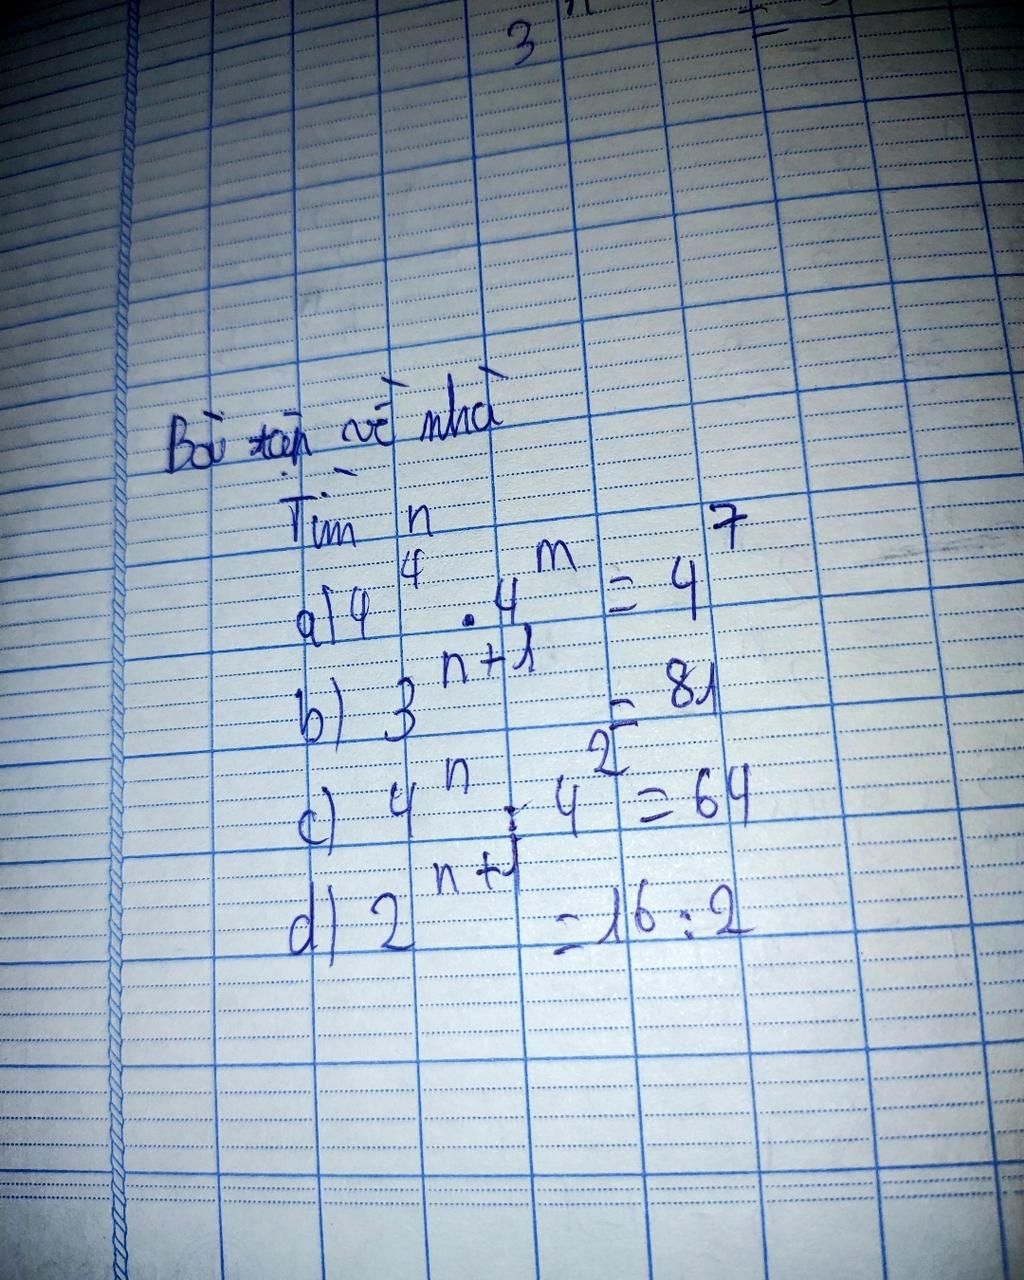 3 =
Bài tập về nhà
Tìm n
a) 4⁴ . 4ᵐ = 4⁷
b) 3ⁿ⁺¹ = 81
c) 4ⁿ : 4² = 64
d) 2ⁿ⁺¹ = 16 : 2